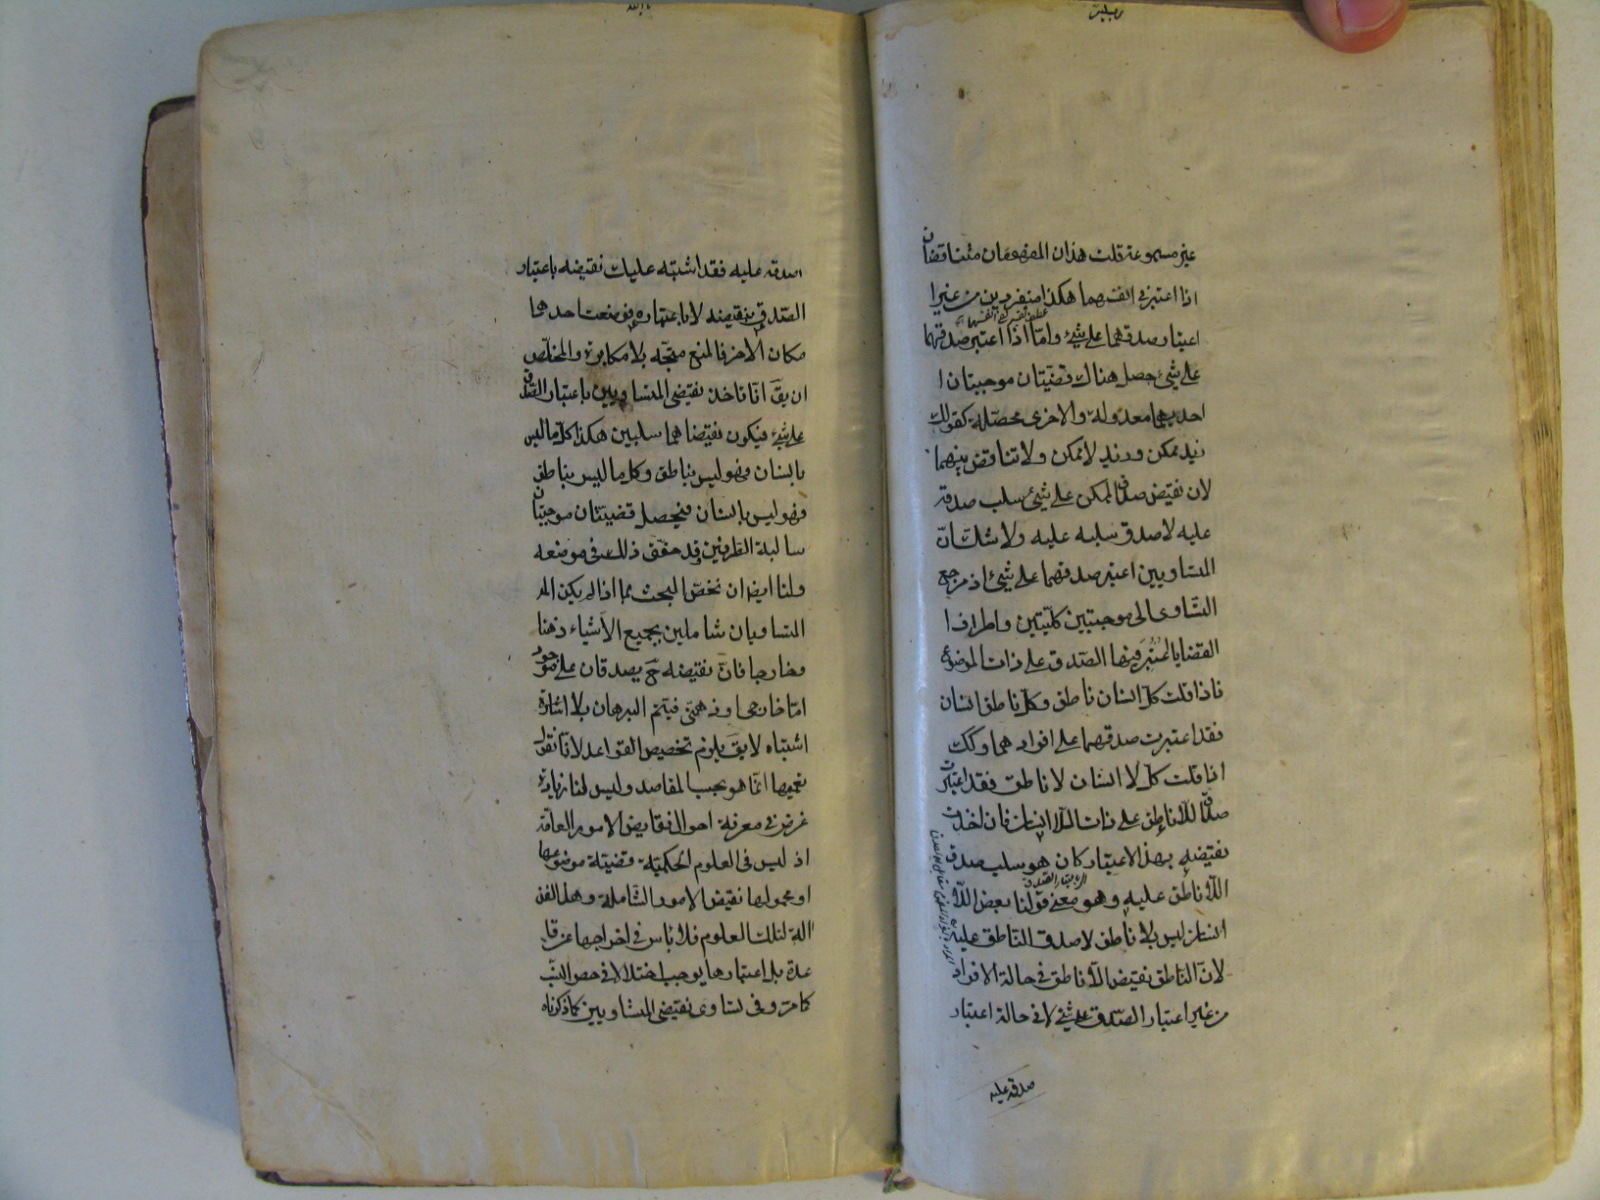 غير مسموعة قلت هذان المفهومان متناقضان
اذا اعتبر فى انفسهما هكذا منفردين من غير ا
اعتبار صدقهما على شئ واما اذا اعتبر صدقهما
على شئ حصل هناك قضيتان موجبتان ا
احديهما معدولة والاخرى محصلة كقولك
زيد ممكن وزيد لا ممكن ولا تناقض بينهما
لان نقيض صدق الممكن على شئ سلب صدقه
عليه لا صدق سلبه عليه ولا شك ان
المتساويين اعتبر صدقهما على شئ اذ مرجع
التساوى الى موجبتين كليتين واطراف ا
القضايا المعتبر فيها الصدق على ذات الموضوع
فاذا قلت كل انسان ناطق وكل ناطق انسان
فقد اعتبرت صدقهما على افرادهما وكك
اذا قلت كل لا انسان لا ناطق فقد اعتبرت
صدق اللا ناطق على ذات اللا انسان فان اخذت
نقيضه بهذا الاعتبار كان هو سلب صدق
اللا ناطق عليه وهو معنى قولنا بعض اللا
انسان ليس بلا ناطق لا صدق الناطق عليه
لان الناطق نقيض اللا ناطق فى حالة الافراد
من غير اعتبار الصدق على شئ لا فى حالة اعتبار
صدقه عليه
صدقه عليه فقد اشتبه عليك نقيضه باعتبار
الصدق بنقيضه لا باعتباره فوضعت احدهما
مكان الاخر فالمنع متجه بلا مكابرة والمخلص
ان يق انا ناخذ نقيضى المتساويين باعتبار الصدق
على شئ فيكون نقيضاهما سلبين هكذا كل ما ليس
بانسان فهو ليس بناطق وكل ما ليس بناطق
فهو ليس بانسان فيحصل قضيتان موجبتان
سالبة الطرفين وقد حقق ذلك فى موضعه
ولنا ايضا ان نخص البحث بما اذا لم يكن الم
المتساويان شاملين بجميع الاشياء ذهنا
وخارجا فان نقيضه ح يصدقان على موجود
اما خارجى او ذهنى فيتم البرهان بلا اشارة
اشتباه لا يق يلزم تخصيص القواعد لانا نقول
تعميمها انما هو بحسب المقاصد وليس لنا زيادة
غرض فى معرفة احوال نقايض الامور العامة
اذ ليس فى العلوم الحكمية قضية موضوعها
او محمولها نقيض الامور الشاملة وهذا الفن
الة لتلك العلوم فلا باس فى اخراجها عن قا
عدة بل اعتبارها يوجب اختلالا فى حصر النسب
كما مر وفى تساوى نقيضى المتساويين كما ذكرناه